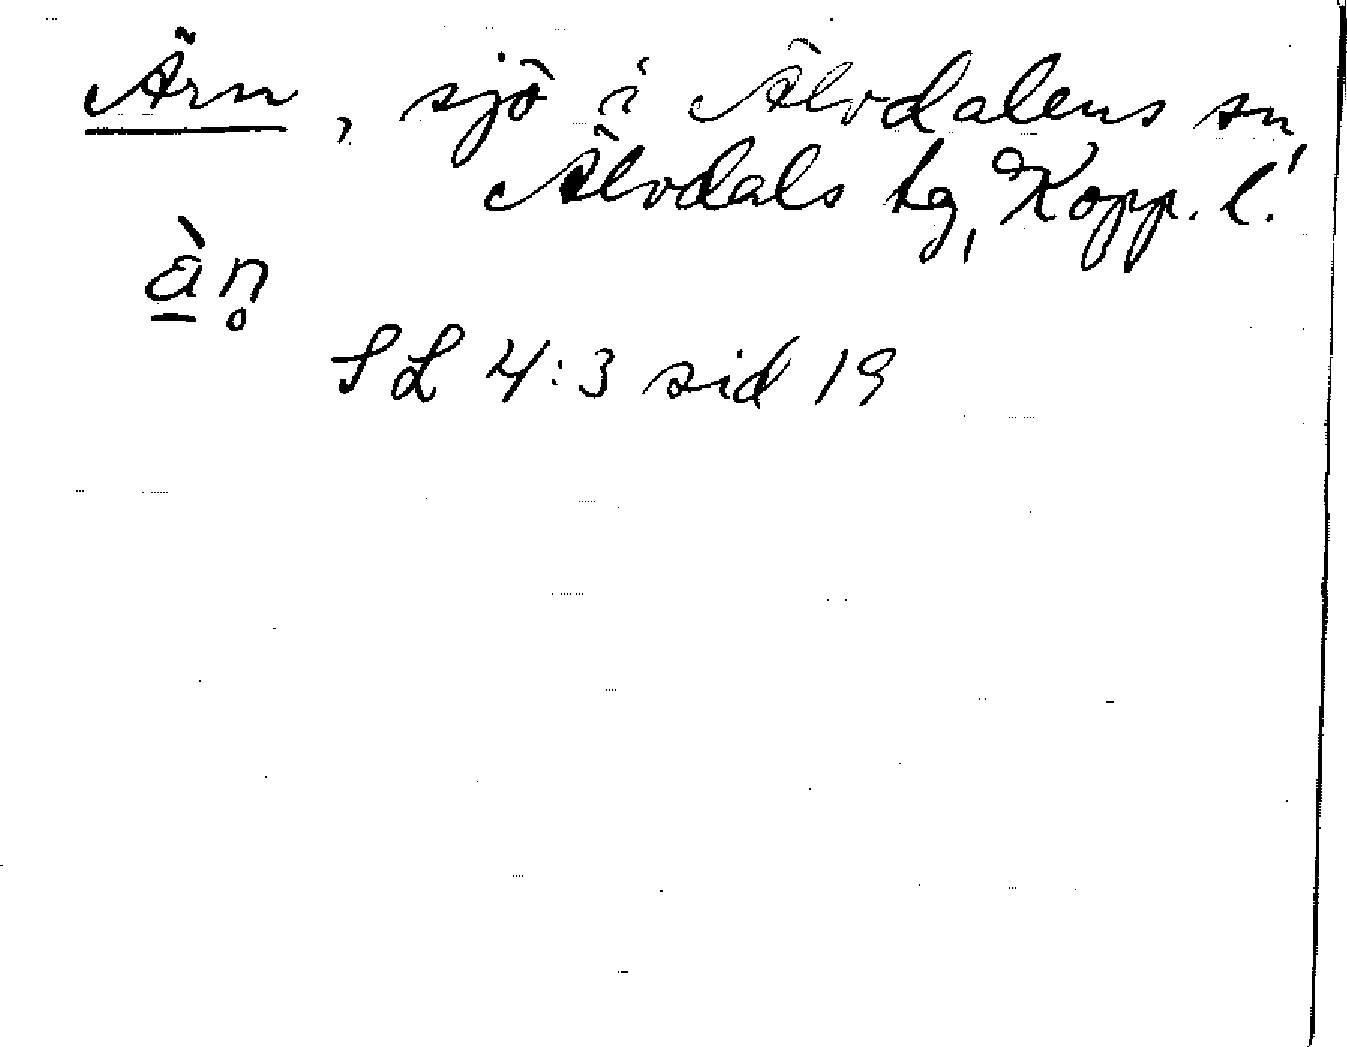 Ärn, sjö i Älvdalens sn,
Älvdals tg, Kopp. l.
à̲n̥
SL 4:3 sid 19